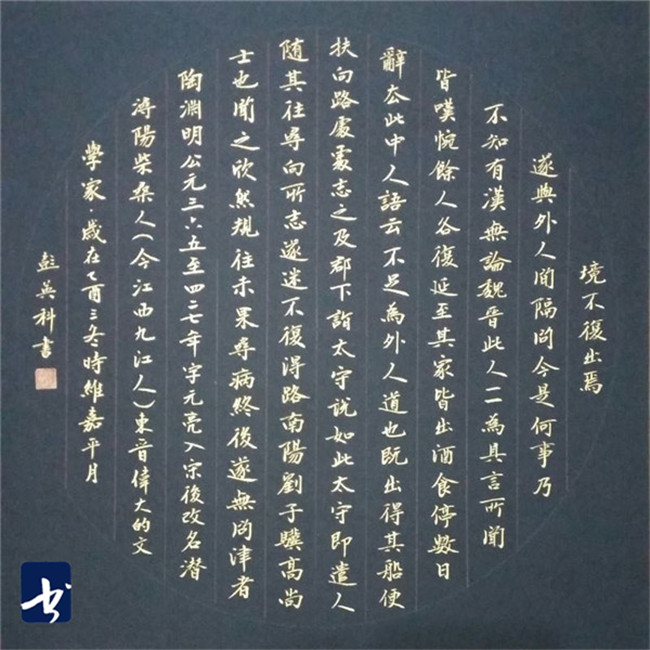 境不復出焉
遂與外人間隔问今是何事乃
不知有漢無論魏晉此人一一為具言所聞
皆嘆惋餘人各復延至其家皆出酒食停數日
辭去此中人語云不足為外人道也既出得其船便
扶向路處處志之及郡下詣太守說如此太守即遣人
随其往尋向所志遂迷不復得路南陽劉子驥高尚
士也聞之欣然規往未果尋病終後遂無问津者
陶淵明公元三六五至四二七年字元亮入宗後改名潜
潯陽柴桑人(今江西九江人)東晉偉大的文
學家·歲在乙酉三冬時維嘉平月
彭英科書
书